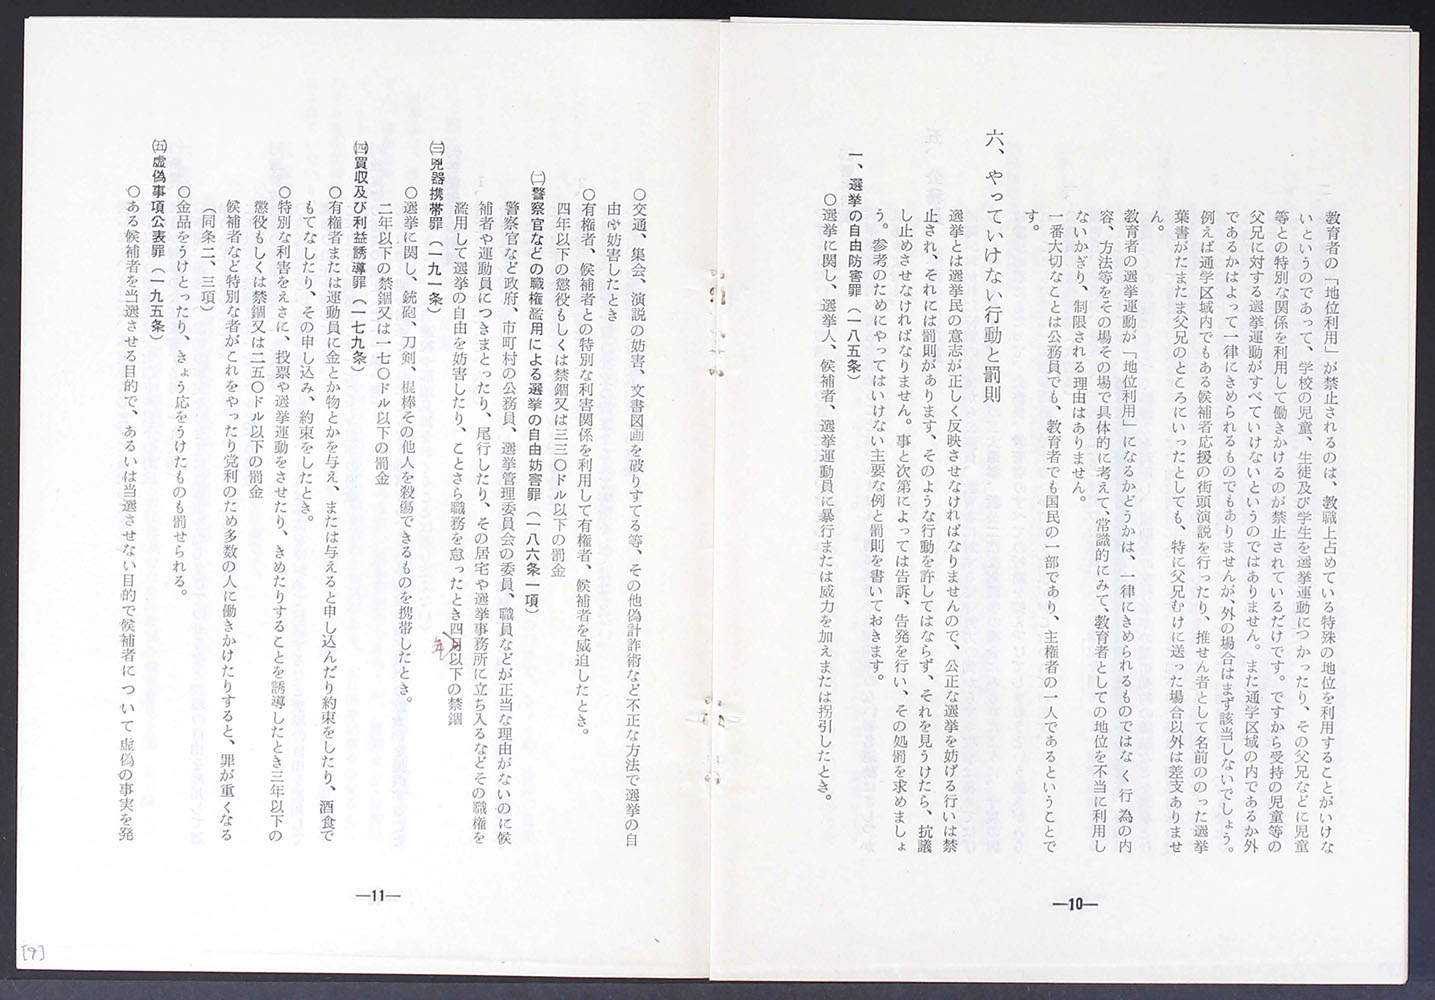 教育者の「地位利用」が禁止されるのは、教職上占めている特殊の地位を利用することがいけな
いというのであって、学校の児童、生徒及び学生を選挙運動につかったり、その父兄などに児童
等との特別な関係を利用して働きかけるのが禁止されているだけです。ですから受持の児童等の
父兄に対する選挙運動がすべていけないというのではありません。また通学区域の内であるか外
であるかはよって一律にきめられるものでもありませんが、外の場合はまず該当しないでしょう。
例えば通学区域内でもある候補者応援の街頭演説を行ったり、推せん者として名前ののった選挙
葉書がたまたま父兄のところにいったとしても、特に父兄むけに送った場合以外は差支ありませ
ん。
教育者の選挙運動が「地位利用」になるかどうかは、一律にきめられるものではなく行為の内
容、方法等をその場その場で具体的に考えて、常識的にみて、教育者としての地位を不当に利用し
ないかぎり、制限される理由はありません。
一番大切なことは公務員でも、教育者でも国民の一部であり、主権者の一人であるということで
す。
六、やっていけない行動と罰則
選挙とは選挙民の意志が正しく反映させなければなりませんので、公正な選挙を妨げる行いは禁
止され、それには罰則があります、そのような行動を許してはならず、それを見うけたら、抗議
し止めさせなければなりません。事と次第によっては告訴、告発を行い、その処罰を求めましょ
う。参考のためにやってはいけない主要な例と罰則を書いておきます。
一、選挙の自由防害罪(一八五条)
○選挙に関し、選挙人、候補者、選挙運動員に暴行または威力を加えまたは拐引したとき。
―10―
○交通、集会、演説の妨害、文書図画を破りすてる等、その他偽計詐術など不正な方法で選挙の自
由を妨害したとき
○有権者、候補者との特別な利害関係を利用して有権者、候補者を威迫したとき。
四年以下の懲役もしくは禁錮又は三三〇ドル以下の罰金
㈡警察官などの職権濫用による選挙の自由妨害罪(一八六条一項)
警察官など政府、市町村の公務員、選挙管理委員会の委員、職員などが正当な理由がないのに候
補者や運動員につきまとったり、尾行したり、その居宅や選挙事務所に立ち入るなどその職権を
濫用して選挙の自由を妨害したり、ことさら職務を怠ったとき四月以下の禁錮
年
㈢兇器携帯罪(一九一条)
○選挙に関し、銃砲、刀剣、棍棒その他人を殺傷できるものを携帯したとき。
二年以下の禁錮又は一七〇ドル以下の罰金
㈣買収及び利益誘導罪(一七九条)
○有権者または運動員に金とか物とかを与え、または与えると申し込んだり約束をしたり、酒食で
もてなしたり、その申し込み、約束をしたとき。
○特別な利害をえさに、投票や選挙運動をさせたり、きめたりすることを誘導したとき三年以下の
懲役もしくは禁錮又は二五〇ドル以下の罰金
候補者など特別な者がこれをやったり党利のため多数の人に働きかけたりすると、罪が重くなる
(同条二、三項)
○金品をうけとったり、きょう応をうけたものも罰せられる。
㈤虚偽事項公表罪(一九五条)
○ある候補者を当選させる目的で、あるいは当選させない目的で候補者について虚偽の事実を発
―11―
[9]